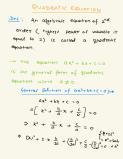 QUADRATIC EQUATION
Def: An algebraic equation of 2nd
order ( highest power of variable is
equal to 2 ) is called a quadratic
equation.
→ The equation ax² + bx + c = 0
is the general form of quadratic
equation where a ≠ 0
General Solution of ax²+bx+c=0
ax² + bx + c = 0
⇒ x² + b/a x + c/a = 0
⇒ x² + b/a x = - c/a